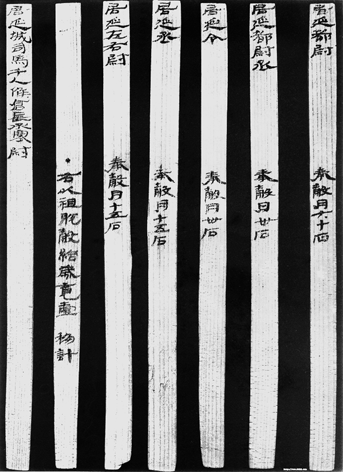 居延都尉 奉穀月六十石
居延都尉丞 奉穀月卅石
居延令 奉穀月卅石
居延丞 奉穀月十五石
居延左右尉 奉穀月十五石
•右以祖脫穀給歲竟壹移計
居延城司馬千人候倉長丞塞尉